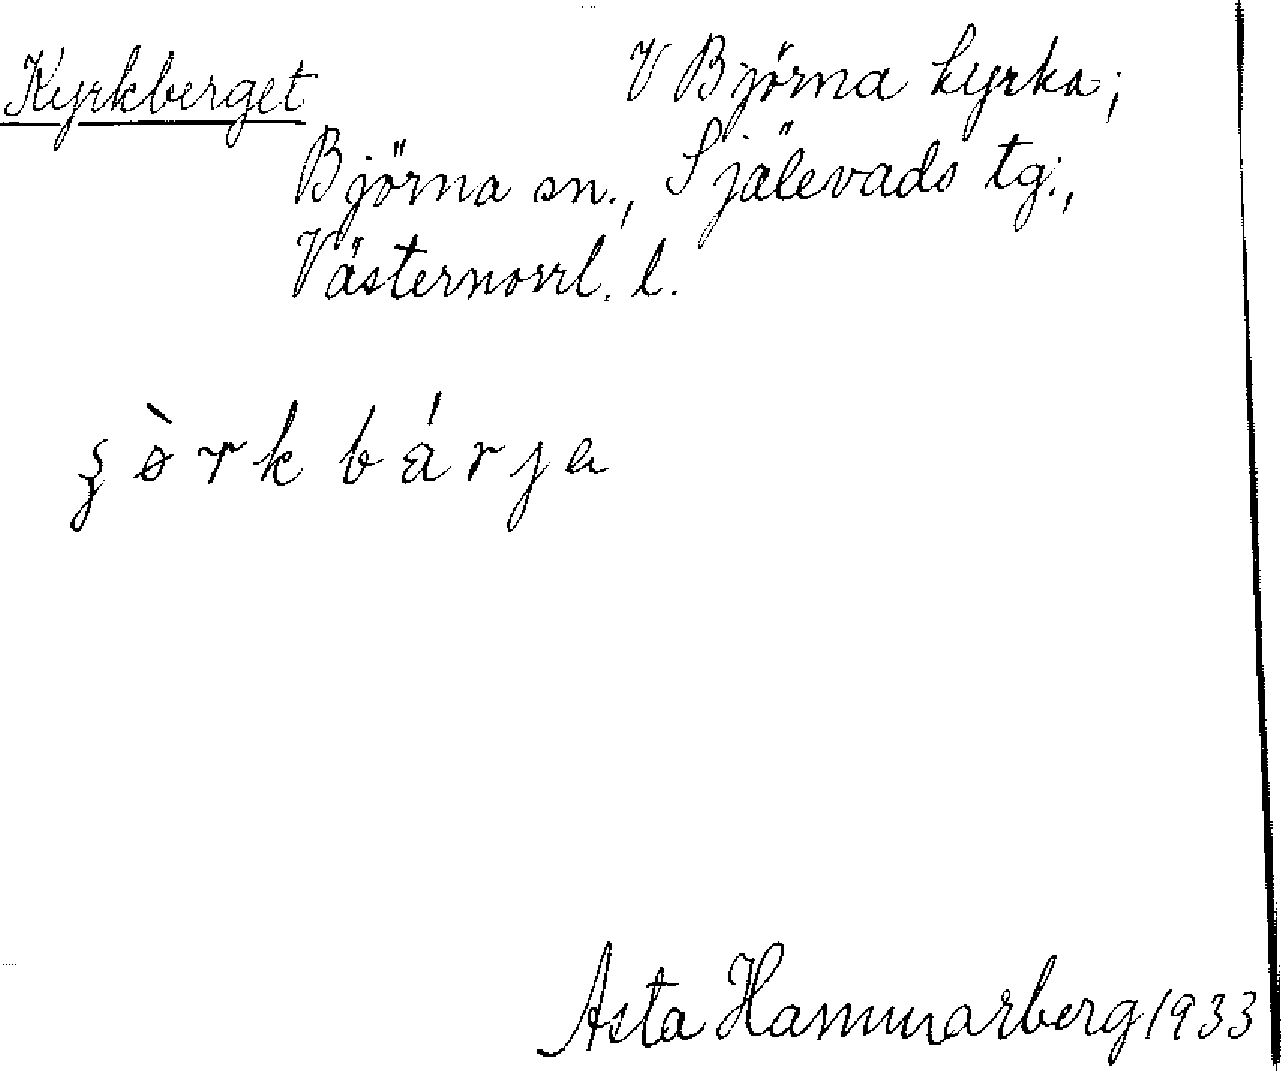 Kyrkberget V Björna kyrka;
Björna sn., Själevads tg.,
Västernorrl. l.
ʂ ö̀ r k b á r j a
Asta Hammarberg 1933